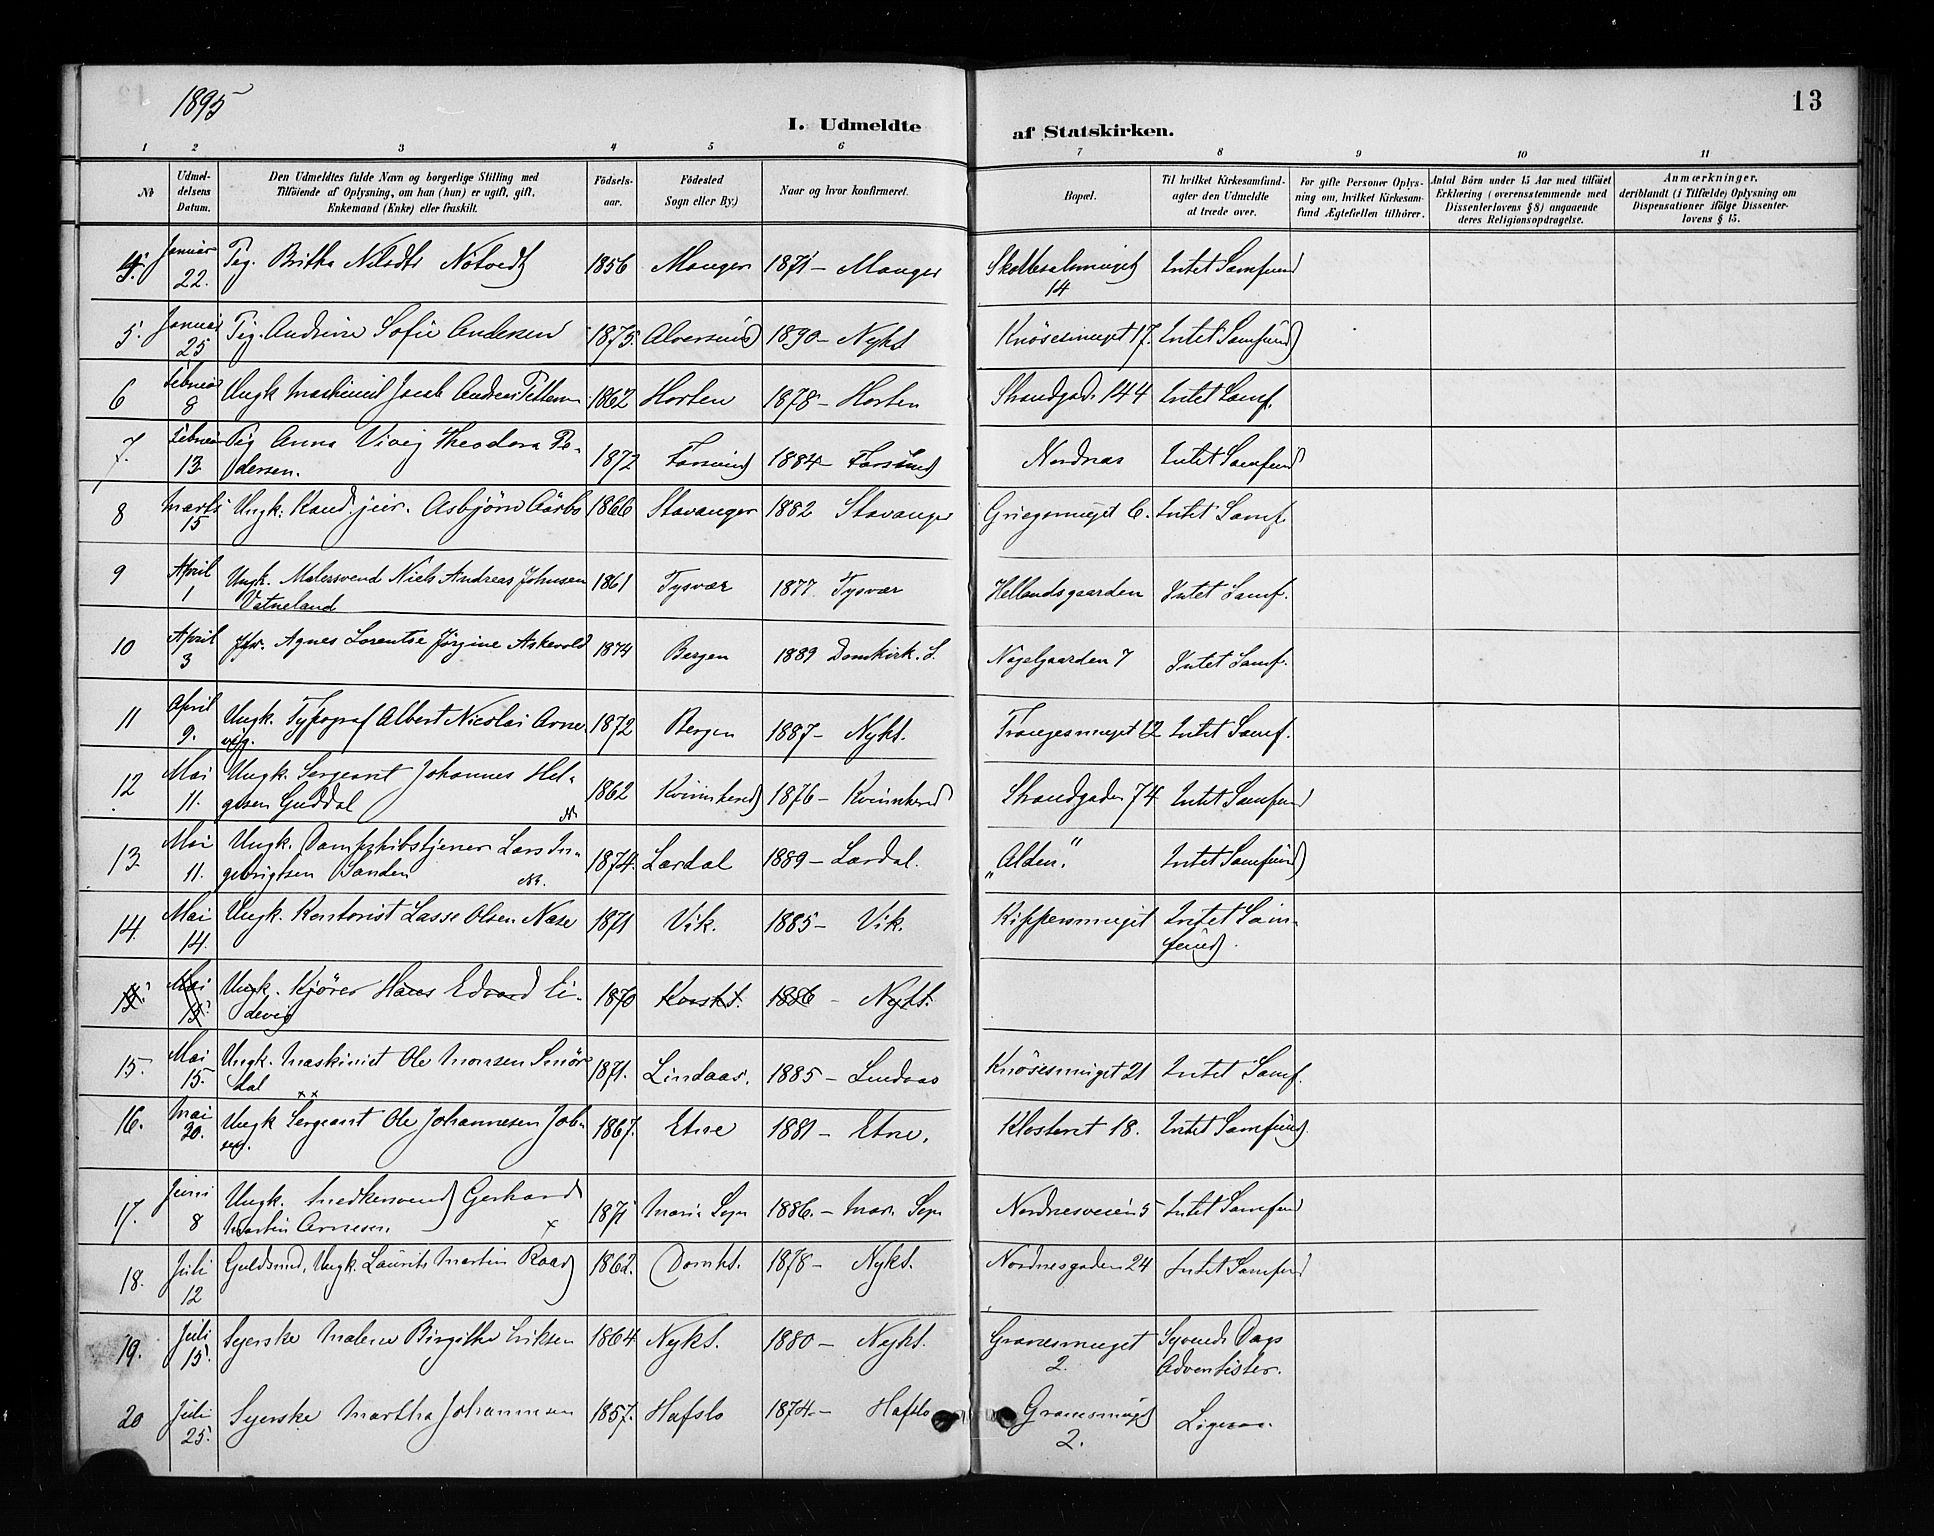 1895
13
I. Udmeldte af Statskirken.
1 2 3 4 5 6 7 8 9 10 11
No
Udmel-
delsens
Datum.
Den Udmeldtes fulde Navn og borgerlige Stilling med
Tilföiende af Oplysning, om han (hun) er ugift, gift,
Enkemand (Enke) eller fraskilt.
Födsels-
aar.
Födested
Sogn eller By.)
Naar og hvor konfirmeret.
Bopæl.
Til hvilket Kirkesamfund-
agter den Udmeldte
at træde over.
For gifte Personer Oplys-
ning om, hvilket Kirkesam-
fund Ægtefællen tilhörer.
Antal Börn under 15 Aar med tilföiet
Erklæring (overensstemmende med
Dissenterlovens § 8) angaaende
deres Religionsopdragelse.
Anmærkninger,
deriblandt (i Tilfælde) Oplysning om
Dispensationer ifölge Dissenter-
lovens § 15.
Januar 22. Pig. Britha Nilsdtr Nötvedt 1856 Manger 1871 – Manger 14 Intet Samfund
5. Januar 25 Pig. Andrine Sofie Andersen 1875. Alversund 1890 – Nykt Knösesmuget 17. Intet Samfund
6 Februar 8 Ungk Maskinist Jacob Andreas 1862 Horten 1878 – Horten Strandgad. 144 Intet Samf.
7. Februar 13. Pig Anna Viveg Theodora Pe-
dersen. 1872 Farsund 1884 – Farsund Nordnæs Intet Samfund
8 Marts 15 Ungk. Kand. jur. Asbjörn Aarbo 1866 Stavanger 1882 Stavanger Griegsmuget 6. Intet Samf.
9 April 1 Ungk. Malersvend Niels Andreas Johnsen
Vatneland 1861 Tysvær 1877 Tysvær Hellandsgaarden Intet Samf.
10 April 3 Agnes Lorentse Jörgine Askevold 1874 Bergen 1889 Domkirk. S. Nagelgaarden 7 Intet Samf.
11 April 9. Ungk. Typograf Albert Nicolai Arne-
vig. 1872 Bergen 1887 – Nykt. Trangesmuget 12 Intet Samf.
12 Mai 11. Ungk. Sergeant Johannes Hel-
gesen Guddal 1862 Kvinnherred 1876 – Kvinnherred Strandgaden 74 Intet Samfund
13 Mai 11. Ungk. Dampskibstjener Lars In-
gebrigtsen Sanden 1874. Lærdal 1889 – Lærdal. „Alden." Intet Samfund
14. Mai 14. Ungk. Kontorist Lasse Olsen Næse 1871 Vik. 1885 – Vik. Kippersmuget Intet Sam-
fund.
15. Mai 15. Ungk. Kjörer Hans Edvard Ei-
devig 1870 Korskt. 1886 – Nykt.
15. Mai 15. Ungk. Maskinist Ole Monsen Smör-
dal 1871. Lindaas. 1885 – Lindaas Knösesmuget 21 Intet Samf.
16. Mai 20. Ungk Sergeant Ole Johannesen 1867. Etne 1881 – Etne. Klosteret 18. Intet Samfund.
17. Juni 8 Ungk. Snedkersvend Gerhard
Martin Arnesen. 1871 Maria Sogn 1886. – Mar. Sogn Nordnesveien 5 Intet Samfund
18. Juli 12 Guldsmed, Ungk. Laurits Martin Raad 1862. Domkt. 1878 – Nykt. Nordnesgaden 24 Intet Samfund
19. Juli 15. Syerske Malene Birgitha Eriksen 1864 Nykt. 1880 – Nykt. Granesmuget
2. Syvend. Dags
Adventister.
20 Juli 25. Syerske Martha Johannesen 1857. Hafslo 1874. – Hafslo Granesmuget
2. Ligesaa.